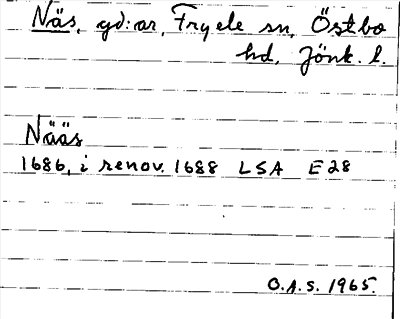 Näs, gd:ar, Fryele sn, Östbo
hd, Jönk. l.
Nääs
1686, i renov. 1688 LSA E28
O.A.S. 1965.